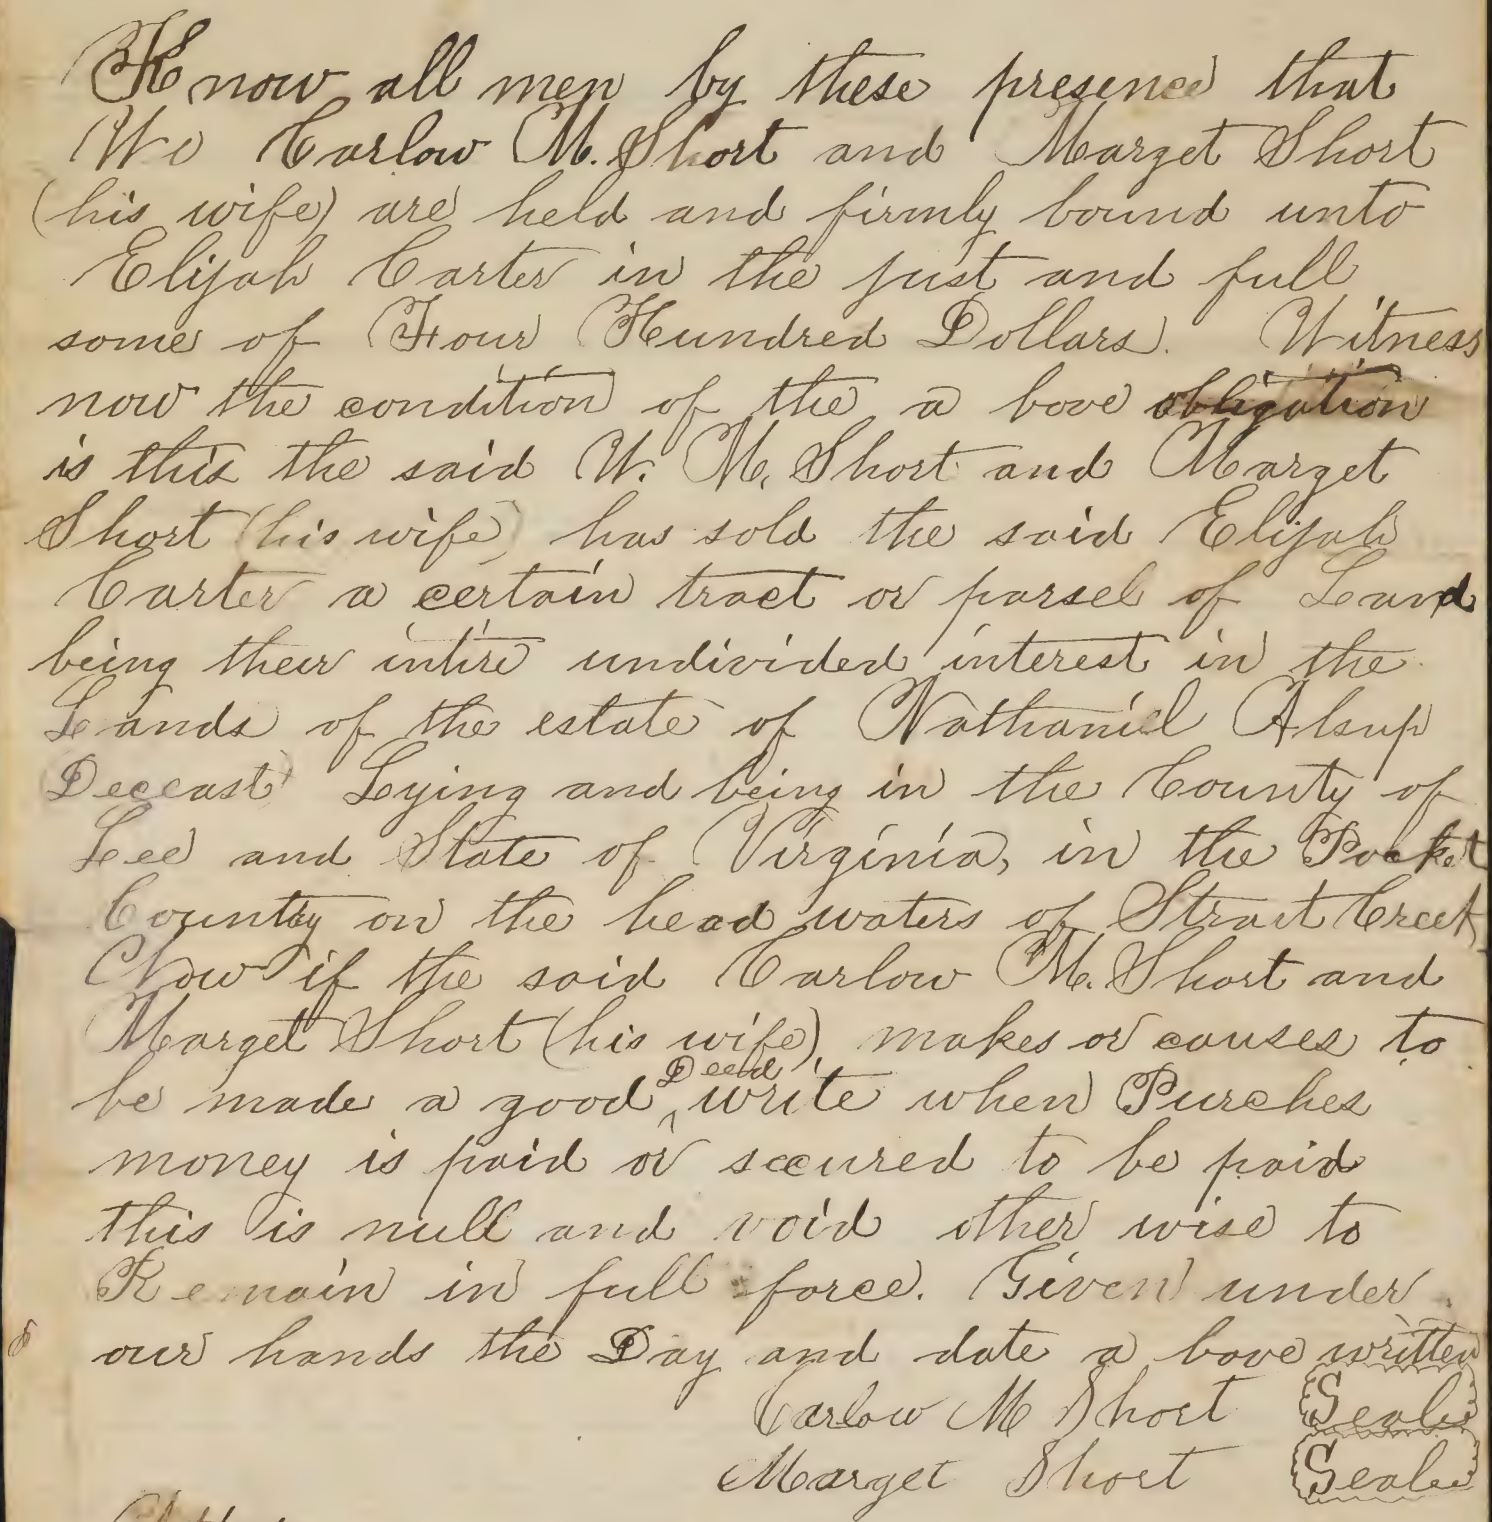 Know all men by these presence that
We Carlow M. Short and Marget Short
(his wife) are held and firmly bound unto
Elijah Carter in the just and full
some of Four Hundred Dollars. Witness
now the condition of the a bove obligation
is this the said W. M. Short and Marget
Short (his wife) has sold the said Elijah
Carter a certain tract or parsel of Land
being their intire undivided interest in the
Lands of the estate of Nathaniel Alsup
Deceast Lying and being in the County of
Lee and State of Virginia, in the Pocket
Country on the head waters of Strait Creek
Now if the said Carlow M. Short and
Marget Short (his wife), makes or causes to
be made a good ^Deed write when Purches
money is paid or secured to be paid
this is null and void other wise to
Remain in full force. Given under
our hands the Day and date a bove written
Carlow M Short Seal
Marget Short Seal